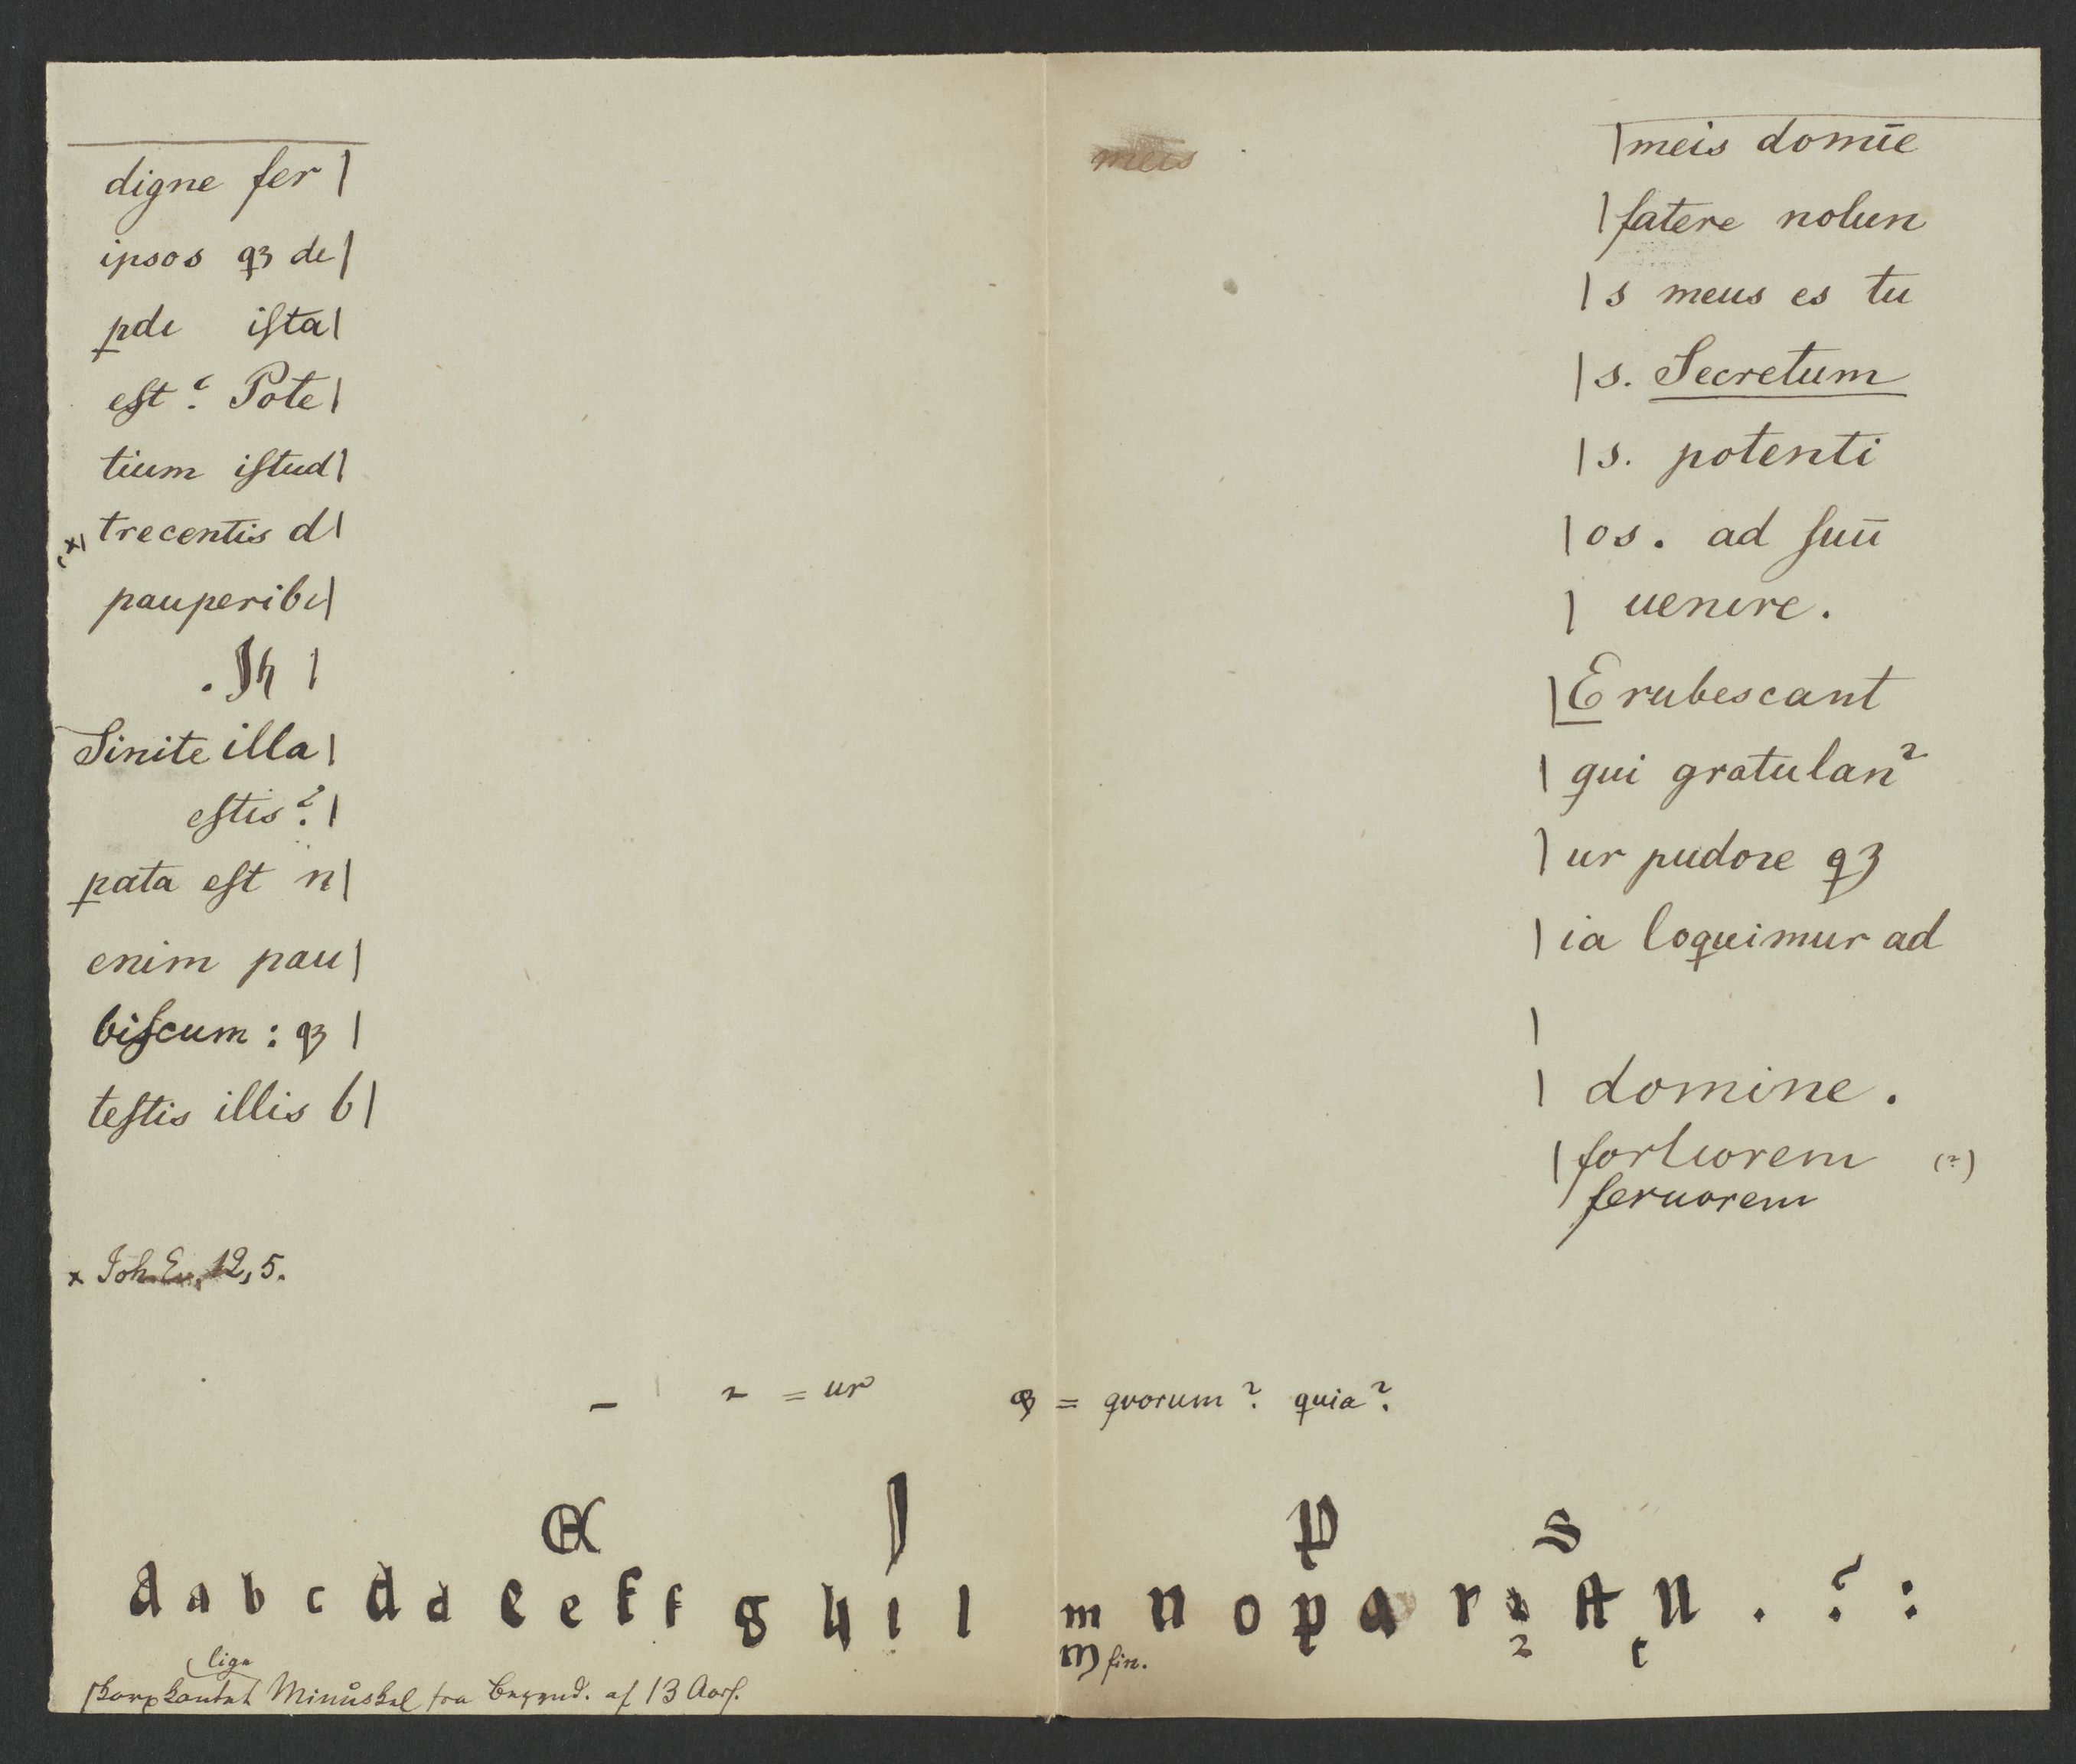 digne fer |
ipsos qꝫ de |
ꝑde iſta |
eſt? Pote |
tium iſtud |
(x) trecentis d |
pauperibu |
. Jh |
Sinite illa |
eſtis? |
ꝑata eſt n |
enim pau |
biſcum : qꝫ |
teſtis illis b |
x Joh. Ev. 12, 5.
meis
| meis domīe
| fatere nolun
| s meus es tu
| s. Secretum
| s. potenti
| os. ad ſuū
| uenire.
| Erubescant
| qui gratulan²
| ur pudoꝛe qꝫ
| ia loquimur ad
|
| domine.
| fortiorem (?)
feruorem
– ꝛ = ur qꝫ = quorum? quia?
E J P S
a a b c d d e e f f g h i l m n o p q r ꝛ st u . ? :
m fin. 2 t
lige
skarpkantet Minuskel fra Begynd. af 13 Aarh.